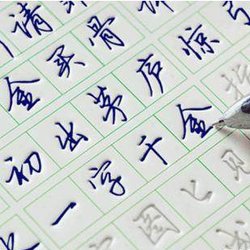 请
金买骨
初出茅庐惊
一字千金
匕见